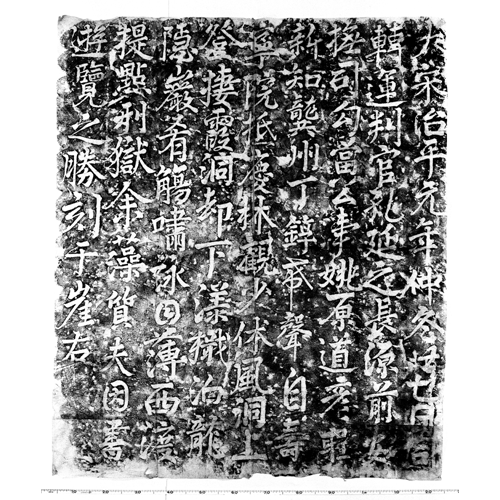 大宋治平元年仲冬廿七日
轉運判官孔延之長源前
撫司勾當公事姚原道彥
新知龔州丁錞聲自壽
寧院抵慶林觀少休風洞上
登棲霞洞却下漾檝泊龍
隱巖肴觴嘯詠日薄西渡
提點刑獄余藻質夫因書
遊覽之勝刻于崖右